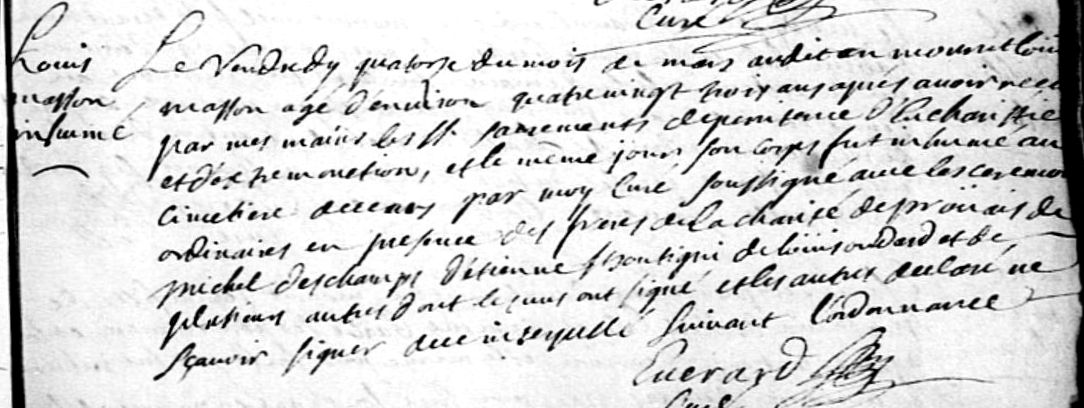 Curé
Louis
masson
inhumé
Le Vendredy quatorze du mois de mars audit an mourut Louis
masson agé d'environ quatre vingt trois ans après avoir receu
par mes mains les Sts sacrements de penitence d'Eucharistie
et d'extremonction, et le même jour son corps fut inhumé au
cimetière de ceans par moy Curé soussigné avec les ceremon
ordinaires en presence des freres de la charité de prouais de
michel deschamps d'étienne de Louis et de
plusieurs autres dont les uns ont signé et les autres declaré ne
sçavoir signer de ce interpellé suivant l'ordonnance
Euerard
Curé